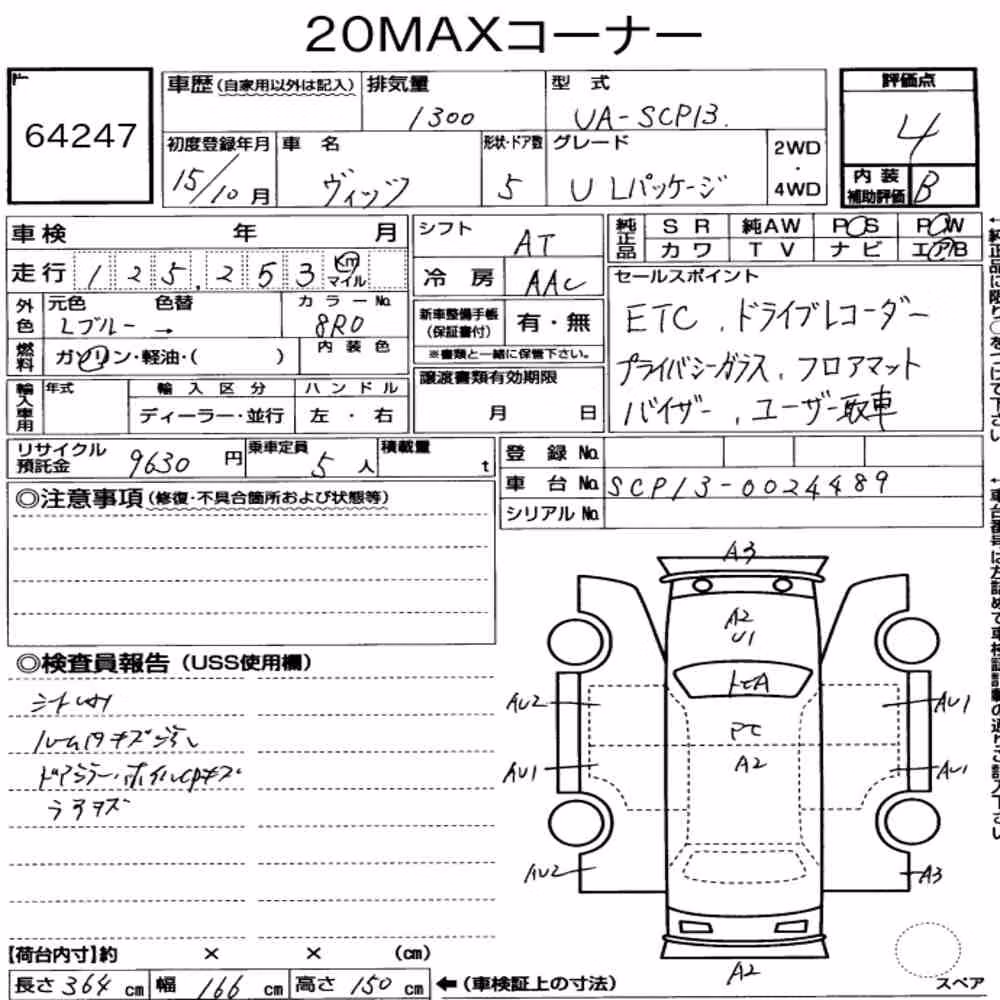 20MAXコーナー
64247
車歴(自家用以外は記入)
排気量
1300
型式
UA-SCP13
評価点
4
初度登録年月
15/10月
車名
ヴィッツ
形状・ドア数
5
グレード
U Lパッケージ
2WD
・
4WD
内装
補助評価
B
車検 年 月
走行 125,253 Km マイル
シフト
AT
冷房
AAC
純正品
SR 純AW PS PW
カワ TV ナビ エアB
←純正品に限り○をつけて下さい
外色
元色 色替
Lブルー →
カラーNo.
8R0
燃料
ガソリン・軽油・( )
内装色
新車整備手帳
(保証書付)
有・無
※書類と一緒に保管下さい。
セールスポイント
ETC、ドライブレコーダー
プライバシーガラス、フロアマット
バイザー、ユーザー取車
輸入車用
年式
輸入区分
ディーラー・並行
ハンドル
左・右
譲渡書類有効期限
月 日
リサイクル
預託金
9630円
乗車定員
5人
積載量
t
登録No.
車台No.
SCP13-0024489
シリアルNo.
◎注意事項(修復・不具合箇所および状態等)
◎検査員報告(USS使用欄)
ルーム内キズ汚レ
ドアミラー・ホイルCPキズ
A3
A2
U1
AU2
AU1
A2
AU1
AU1
AU2
A3
A2
スペア
【荷台内寸】約 × × (cm)
長さ364cm 幅166cm 高さ150cm ←(車検証上の寸法)